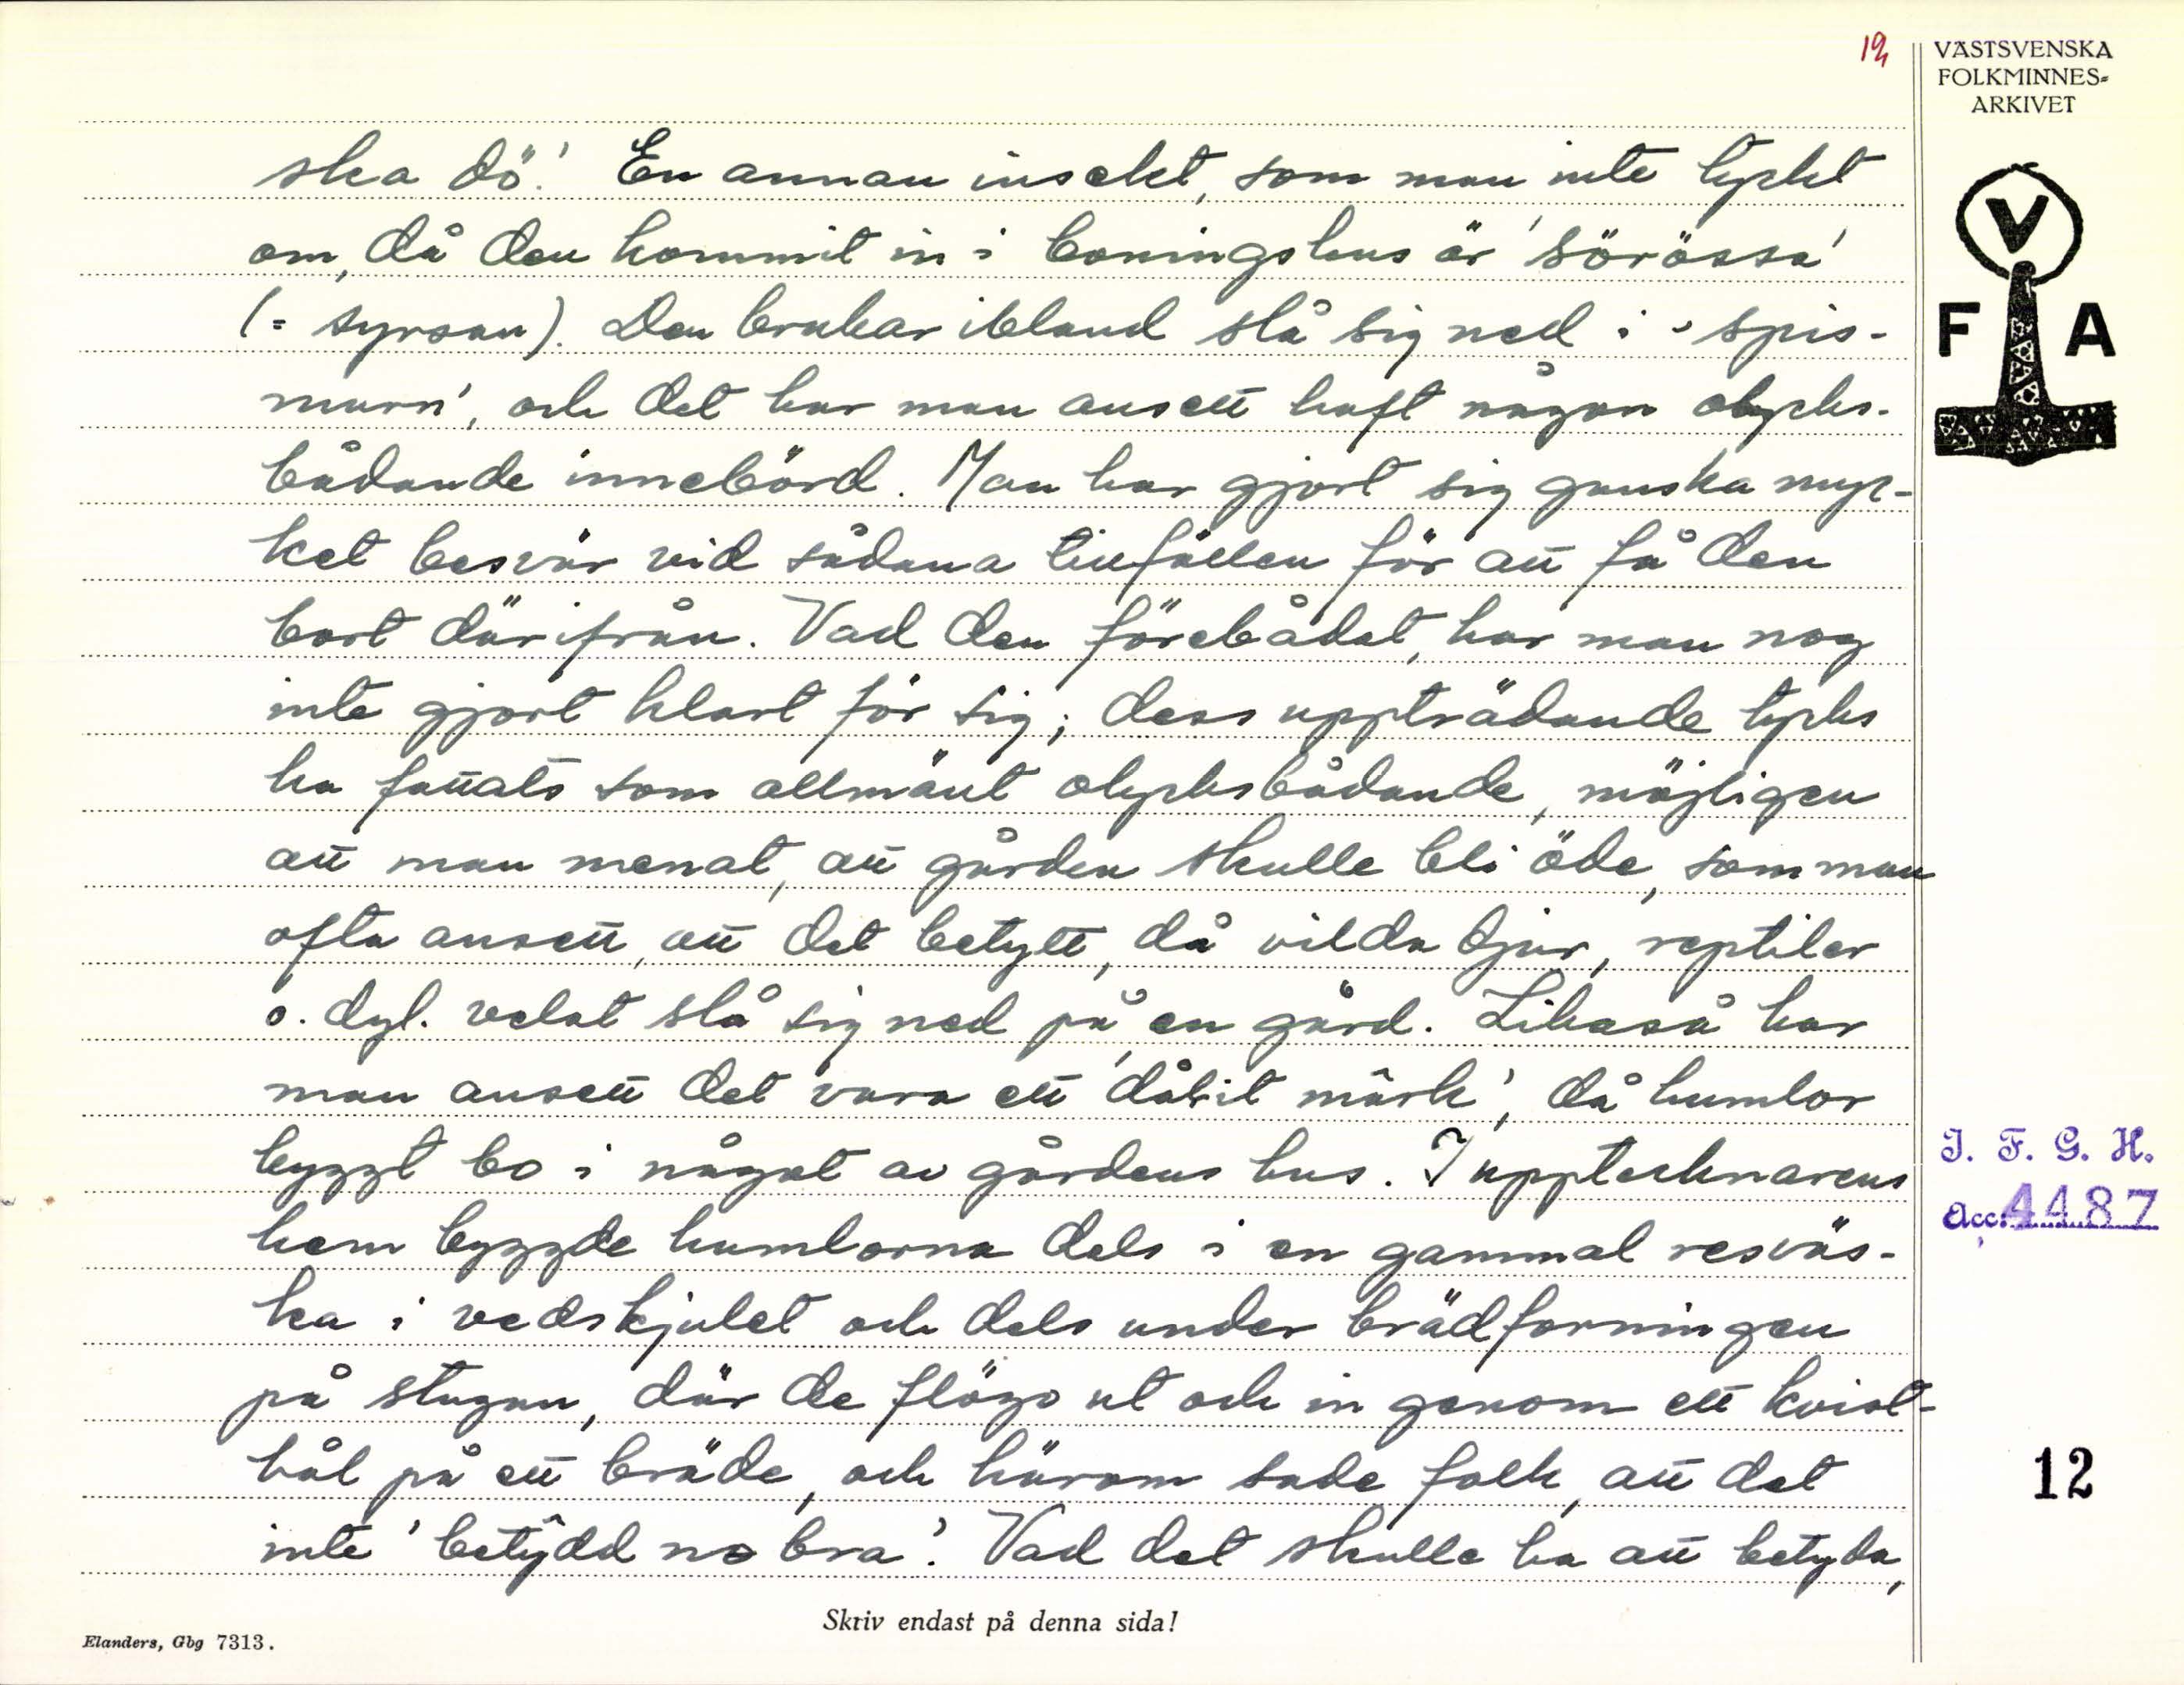 12
VÄSTSVENSKA
FOLKMINNES-
ARKIVET
V
F A
ska dö.' En annan insekt, som man inte tyckt
om, då den kommit in i boningshus är 'sörössa'
(= syrsan). Den brukar ibland slå sig ned i 'spis-
murn', och det har man ansett haft någon olycks-
bådande innebörd. Man har gjort sig ganska myc-
ket besvär vid sådana tillfällen för att få den
bort därifrån. Vad den förebådat, har man nog
inte gjort klart för sig; dess uppträdande tycks
ha fattats som allmänt olycksbådande, möjligen
att man menat, att gården skulle bli öde, som man
ofta ansett, att det betytt, då vilda djur, reptiler
o. dyl. velat slå sig ned på en gård. Likaså har
man ansett det vara ett 'dålit märk', då humlor
byggt bo i något av gårdens hus. I upptecknarens
hem byggde humlorna dels i en gammal resväs-
ka i vedskjulet och dels under brädforningen
på stugan, där de flögo ut och in genom ett kvist-
hål på ett bräde, och härom sade folk, att det
inte 'betydd no bra'. Vad det skulle ha att betyda,
I. F. G. H.
Acc. 4487
12
Skriv endast på denna sida!
Elanders, Gbg 7313.